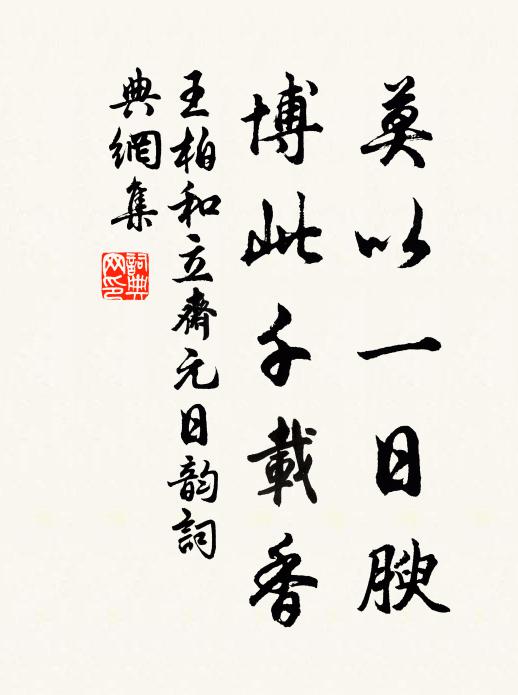 莫以一日腴
博此千載香
王柏和立齋元日韵詞
典網集
詞典
网印